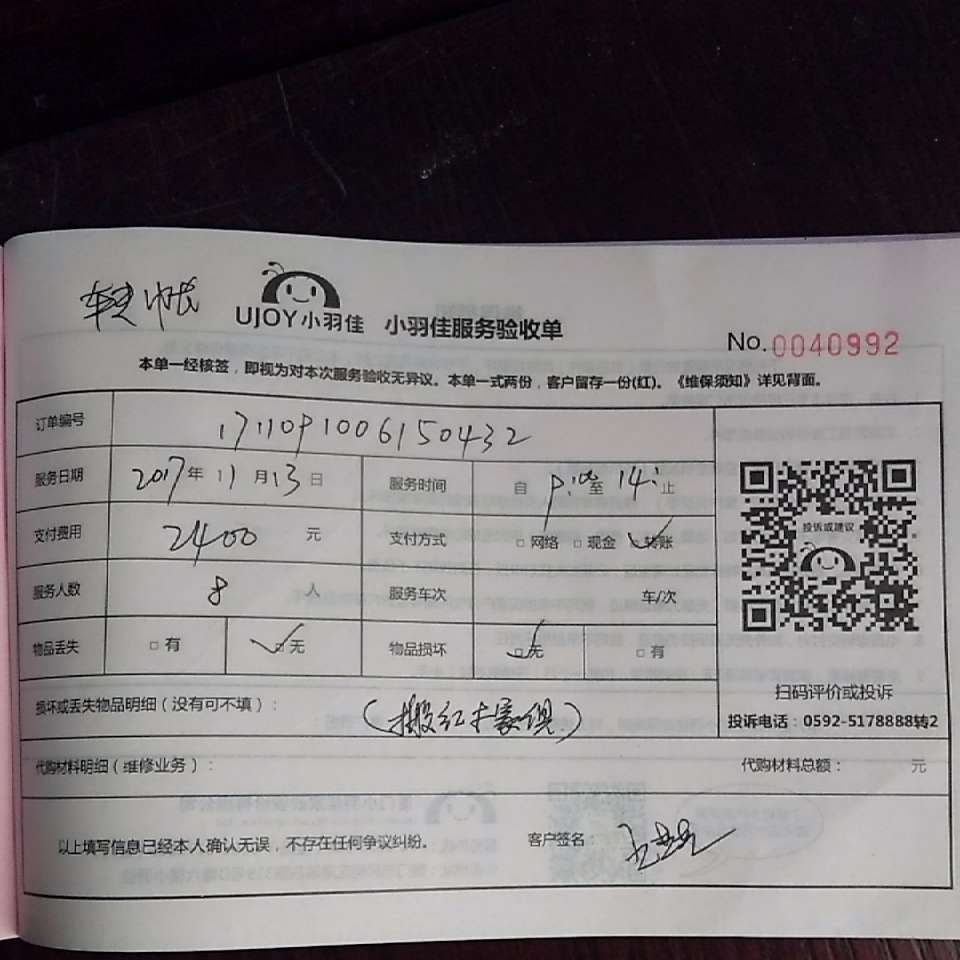 转账
UJOY小羽佳 小羽佳服务验收单
No.0040992
本单一经核签，即视为对本次服务验收无异议。本单一式两份，客户留存一份(红)。《维保须知》详见背面。
订单编号 171109100615043​2
服务日期 2017年11月13日 服务时间 自9:00至14:止
支付费用 2400 元 支付方式 □网络 □现金 ☑转账
服务人数 8 人 服务车次 车/次
物品丢失 □有 ☑无 物品损坏 ☑无 □有
投诉或建议
扫码评价或投诉
投诉电话：0592-5178888转2
损坏或丢失物品明细（没有可不填）： （搬红木家俱）
代购材料明细（维修业务）： 代购材料总额： 元
以上填写信息已经本人确认无误，不存在任何争议纠纷。 客户签名：